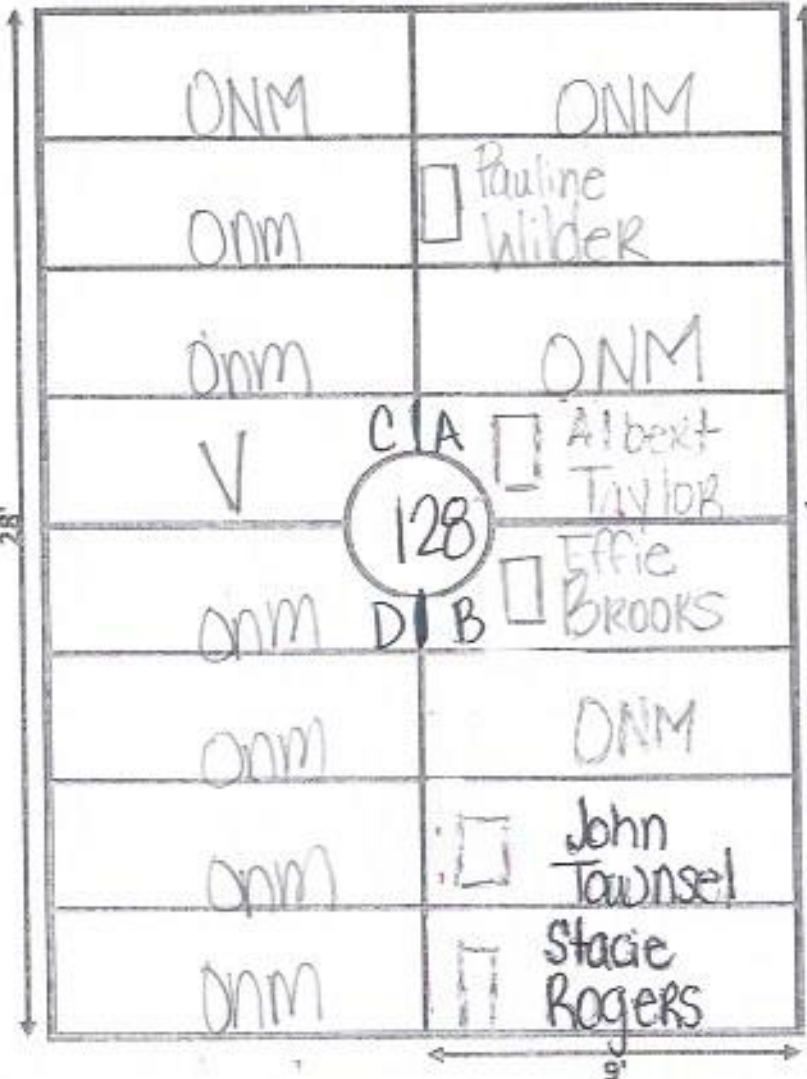 ONM ONM
Onm Pauline
Wilder
Onm ONM
V C A Albert
Taylor
28'
128
Onm D B Effie
BROOKS
Onm ONM
Onm John
Townsel
Onm Stacie
Rogers
9'